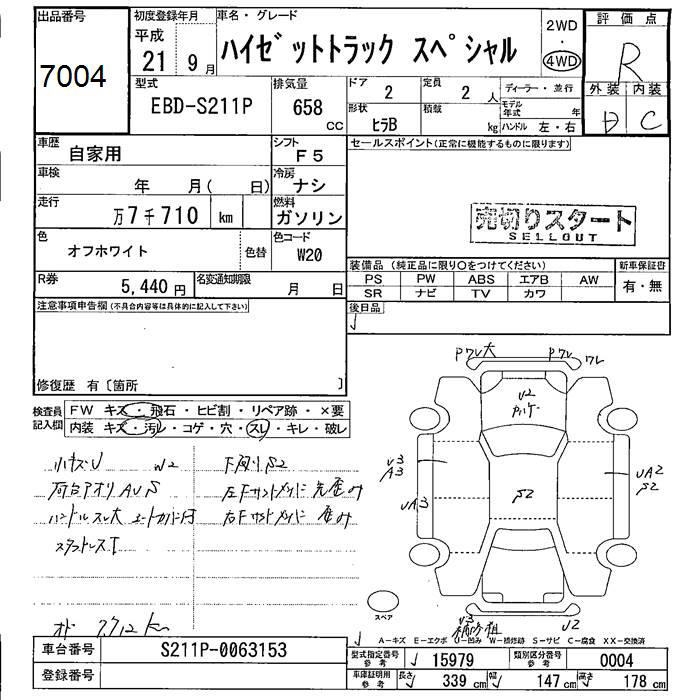 出品番号
7004
初度登録年月
平成
21 9 月
車名・グレード
ハイゼットトラック スペシャル
2WD
・
4WD
評価点
R
外装 内装
C
型式
EBD-S211P
排気量
658
CC
ドア
2
定員
2 人
ディーラー・並行
モデル年式 年
形状
ヒラB
積載
kg
ハンドル 左・右
車歴
自家用
シフト
F5
セールスポイント(正常に機能するものに限ります)
車検
年 月( 日)
冷房
ナシ
走行
万7千710 km
燃料
ガソリン
売切りスタート
SELLOUT
色
オフホワイト
色替
色コード
W20
装備品 (純正品に限り○をつけてください)
新車保証書
PS PW ABS エアB AW
SR ナビ TV カワ
有・無
R券
5,440 円
名変通知期限
月 日
後日品
注意事項申告欄(不具合内容等は具体的に記入して下さい)
修復歴 有〔箇所 〕
検査員記入欄
FW キズ・飛石・ヒビ割・リペア跡・×要
内装 キズ・汚レ・コゲ・穴・スレ・キレ・破レ
小キズU W2
下廻りS2
荷台アオリAUS
ハンドルスレ大
Pワレ大 Pワレ ワレ
U2
U3
A3
UA3
S2
UA2
S2
スペア
U3
U2
A-キズ E-エクボ U-凹み W-補修跡 S-サビ C-腐食 XX-交換済
オド 7712 km
車台番号
S211P-0063153
登録番号
型式指定番号
参考
15979
類別区分番号
参考
0004
車庫証明用
参考
長さ 339 cm 幅 147 cm 高さ 178 cm